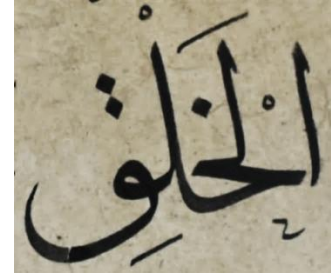 الْخَلْقِ